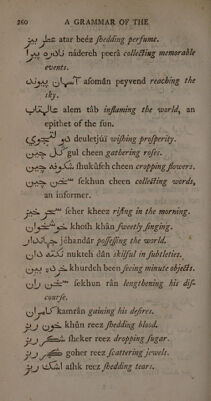 260 A GRAMMAR OF THE
عطر بيز atar beéz ſhedding perfume.
نادره پيرا nádereh peerá collecting memorable
events.
آسمان پيوند asomân peyvend reaching the
sky.
عالمتاب alem tâb inflaming the world, an
epithet of the ſun.
دولتجوي deuletjúï wiſhing proſperity.
گل چين gul cheen gathering roſes.
شكوفه چين ſhukûfeh cheen cropping flowers.
سخن چين ſekhun cheen collecting words,
an informer.
سحر خيز ſeher kheez riſing in the morning.
خوشخوان khoſh khân ſweetly ſinging.
جهاندار jehândâr poſſeſſing the world.
نكته دان nukteh dân ſkilful in ſubtleties.
خرده بين khurdeh been ſeeing minute objects.
سخن ران ſekhun rân lengthening his diſ-
courſe.
كامران kamrân gaining his deſires.
خون ريز khûn reez ſhedding blood.
شكر ريز ſheker reez dropping ſugar.
گوهر ريز goher reez ſcattering jewels.
اشك ريز aſhk reez ſhedding tears.